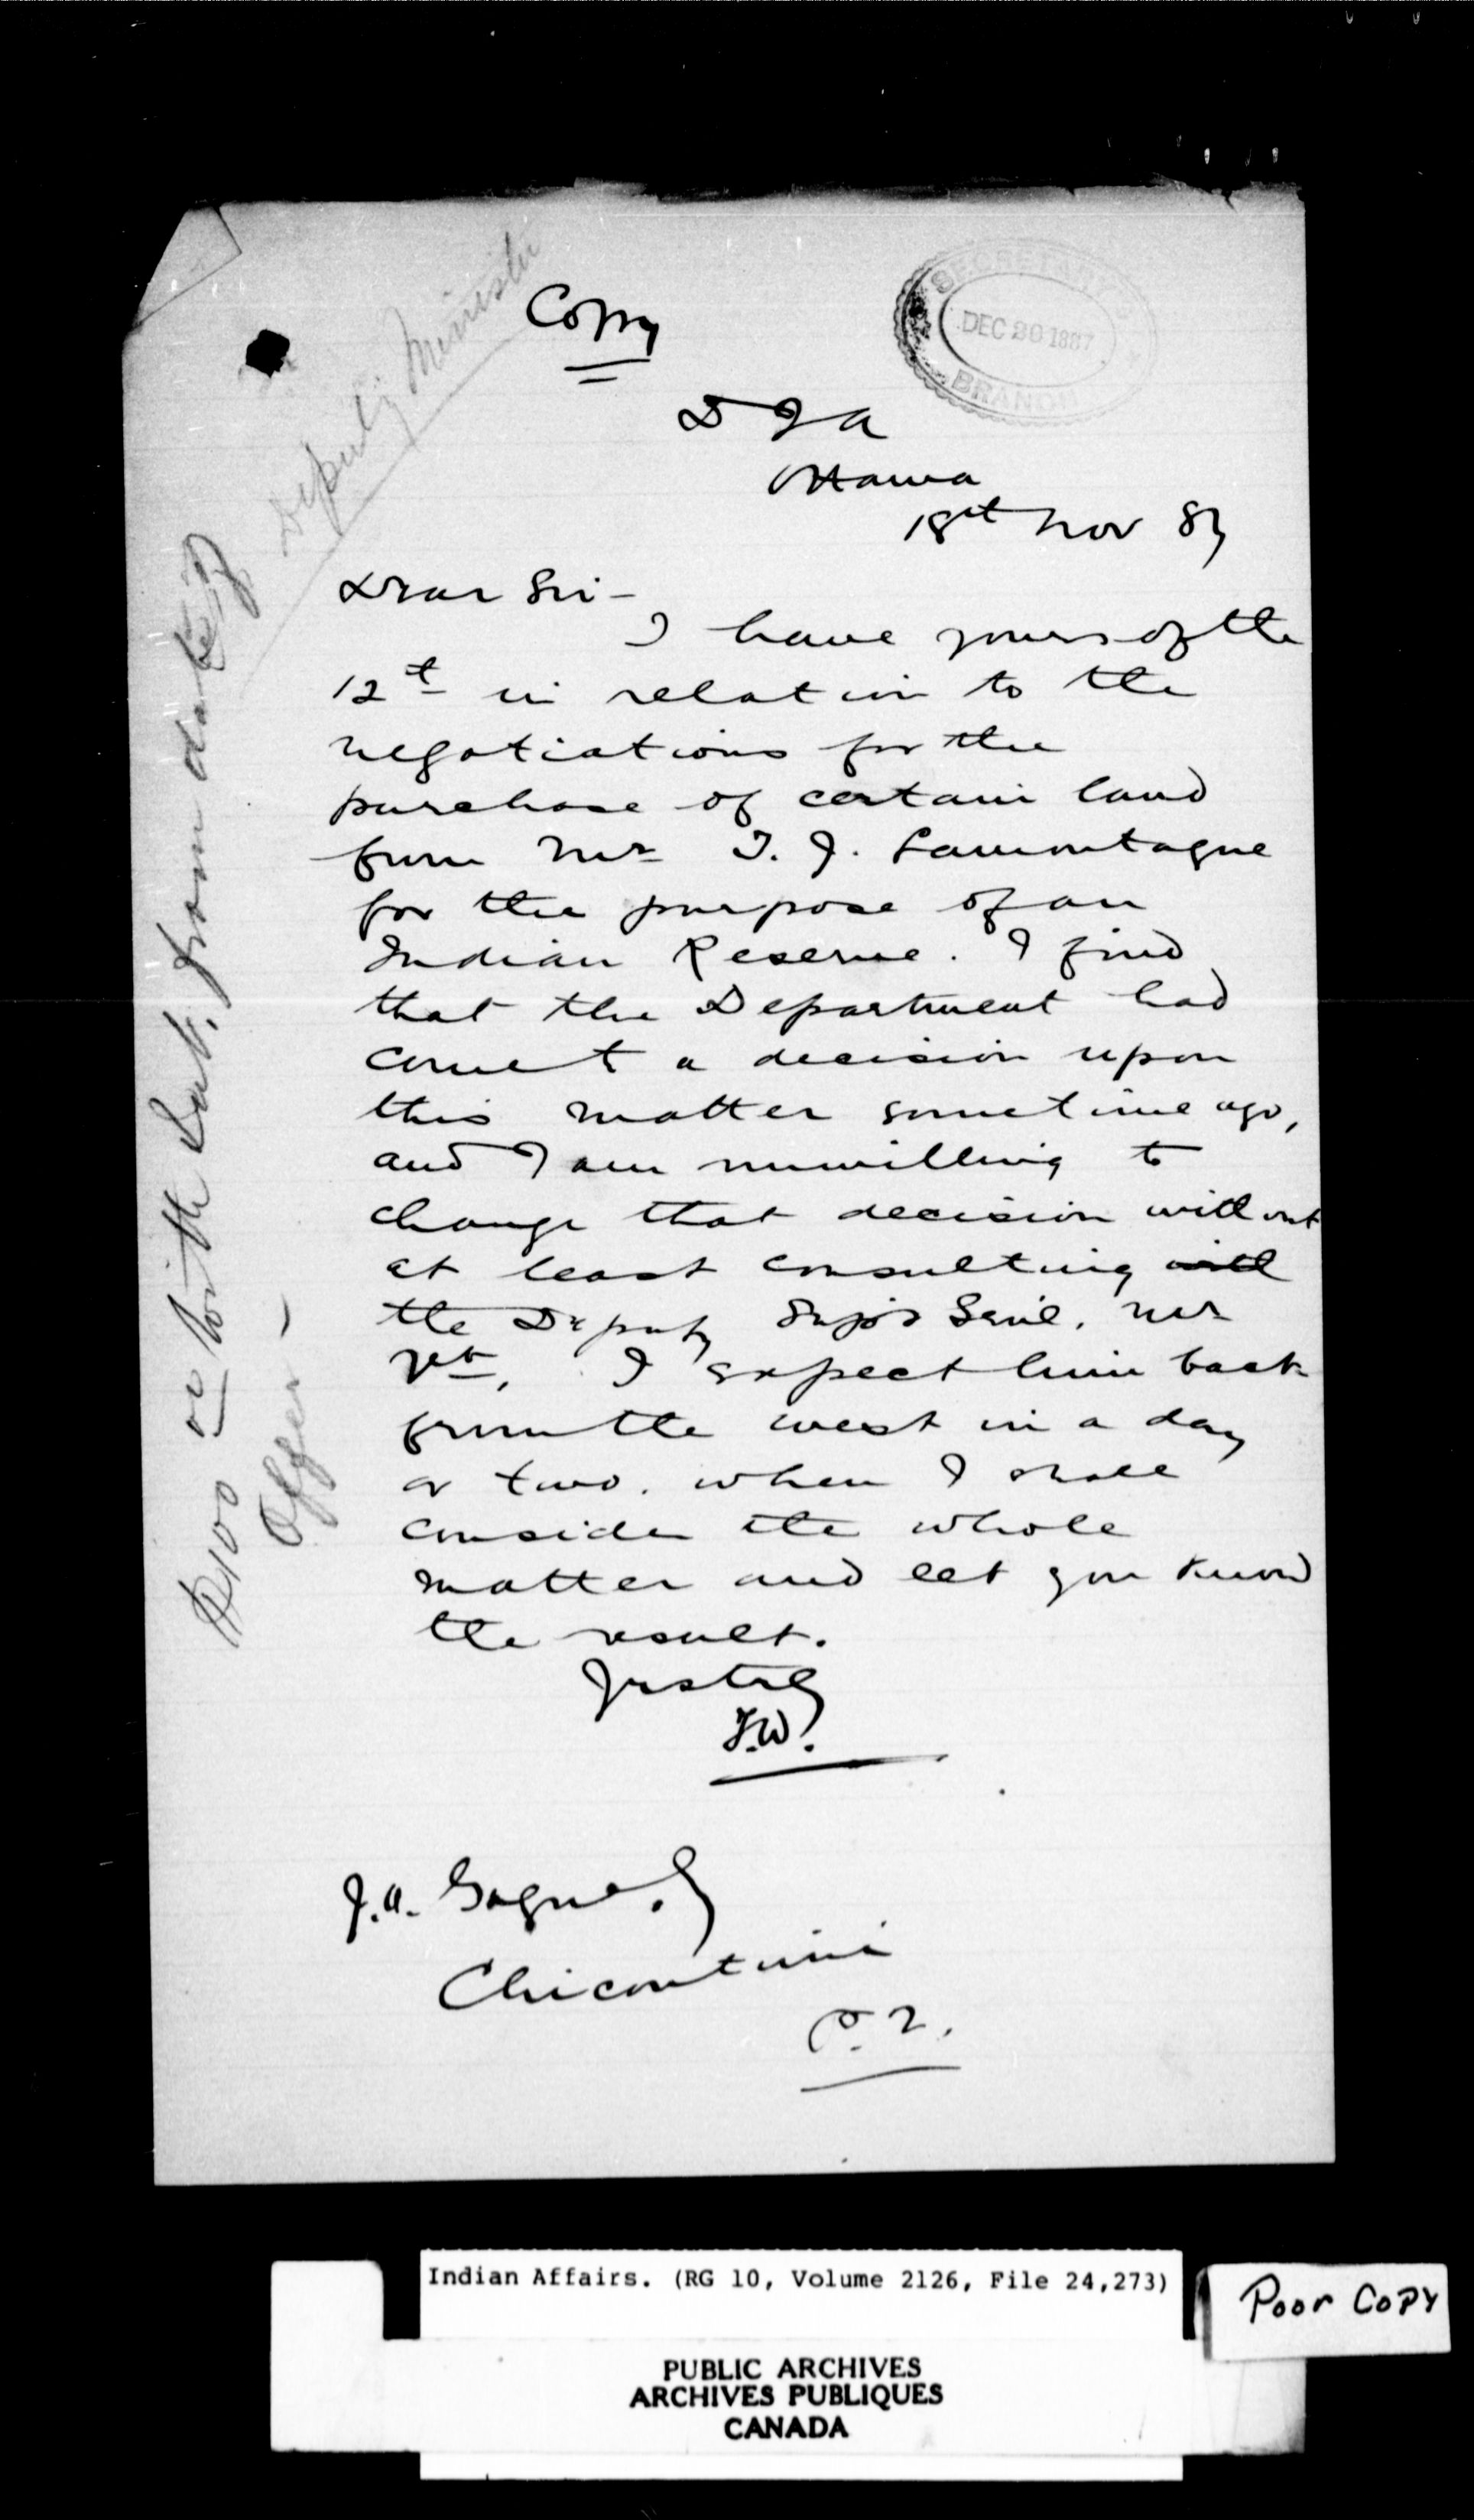 Copy
SECRETARY'S
DEC 30 1887
BRANCH
Deputy Minister
D I A
Ottawa
18th Nov 87
Dear Sir -
I have yours of the
12th in relation to the
negotiations for the
purchase of certain land
from Mr T. J. Lamontagne
for the purpose of an
Indian Reserve. I find
that the Department had
come to a decision upon
this matter sometime ago,
and I am unwilling to
change that decision without
at least consulting with
the Deputy Supt Genl. Mr
Vt. I expect him back
from the west in a day
or two. when I shall
consider the whole
matter and let you know
the result.
Yrs truly
T.W.
J.A. Gagne.
Chicoutimi
P.Q.
$100 00 with Int. from date of
Offer -
Indian Affairs. (RG 10, Volume 2126, File 24,273)
Poor Copy
PUBLIC ARCHIVES
ARCHIVES PUBLIQUES
CANADA